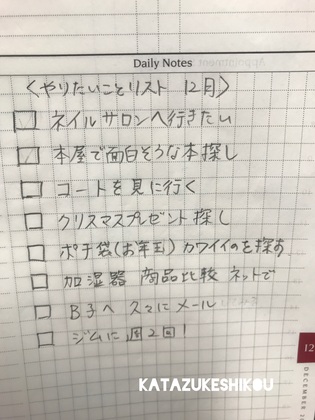 Daily Notes
〈やりたいことリスト 12月〉
□ ネイルサロンへ行きたい
□ 本屋で面白そうな本探し
□ コートを見に行く
□ クリスマスプレゼント探し
□ ポチ袋(お年玉)カワイイのを探す
□ 加湿器 商品比較 ネットで
□ B子へ 久々にメール
□ ジムに週2回!
12
DECEMBER
KATAZUKESHIKOU